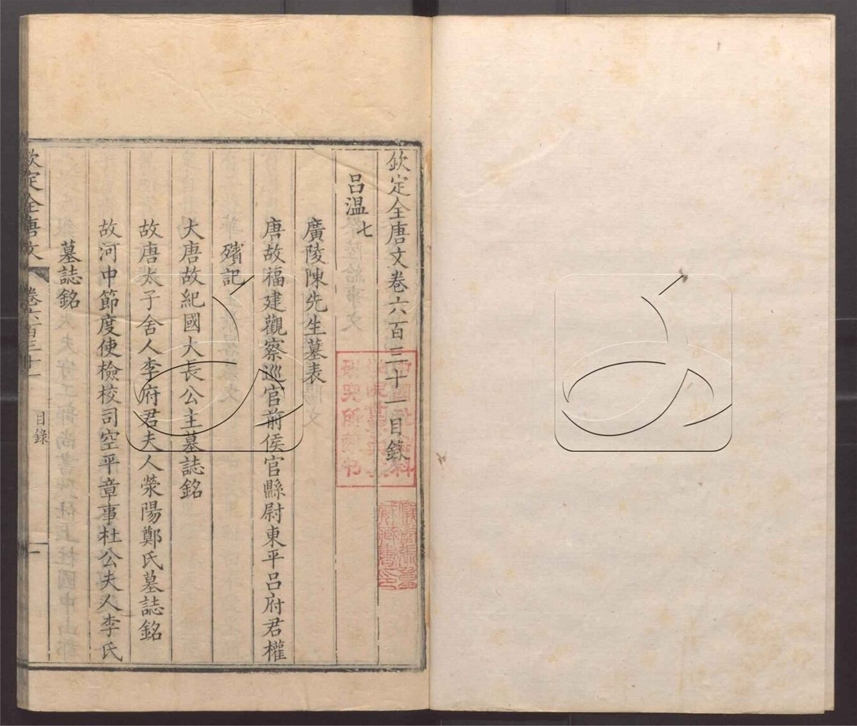 欽定全唐文卷六百三十一目錄
呂溫七
廣陵陳先生墓表
唐故福建觀察巡官前侯官縣尉東平呂府君權
殯記
大唐故紀國大長公主墓誌銘
故唐太子舍人李府君夫人滎陽鄭氏墓誌銘
故河中節度使檢校司空平章事杜公夫人李氏
墓誌銘
欽定全唐文
卷六百三十一
目錄
一